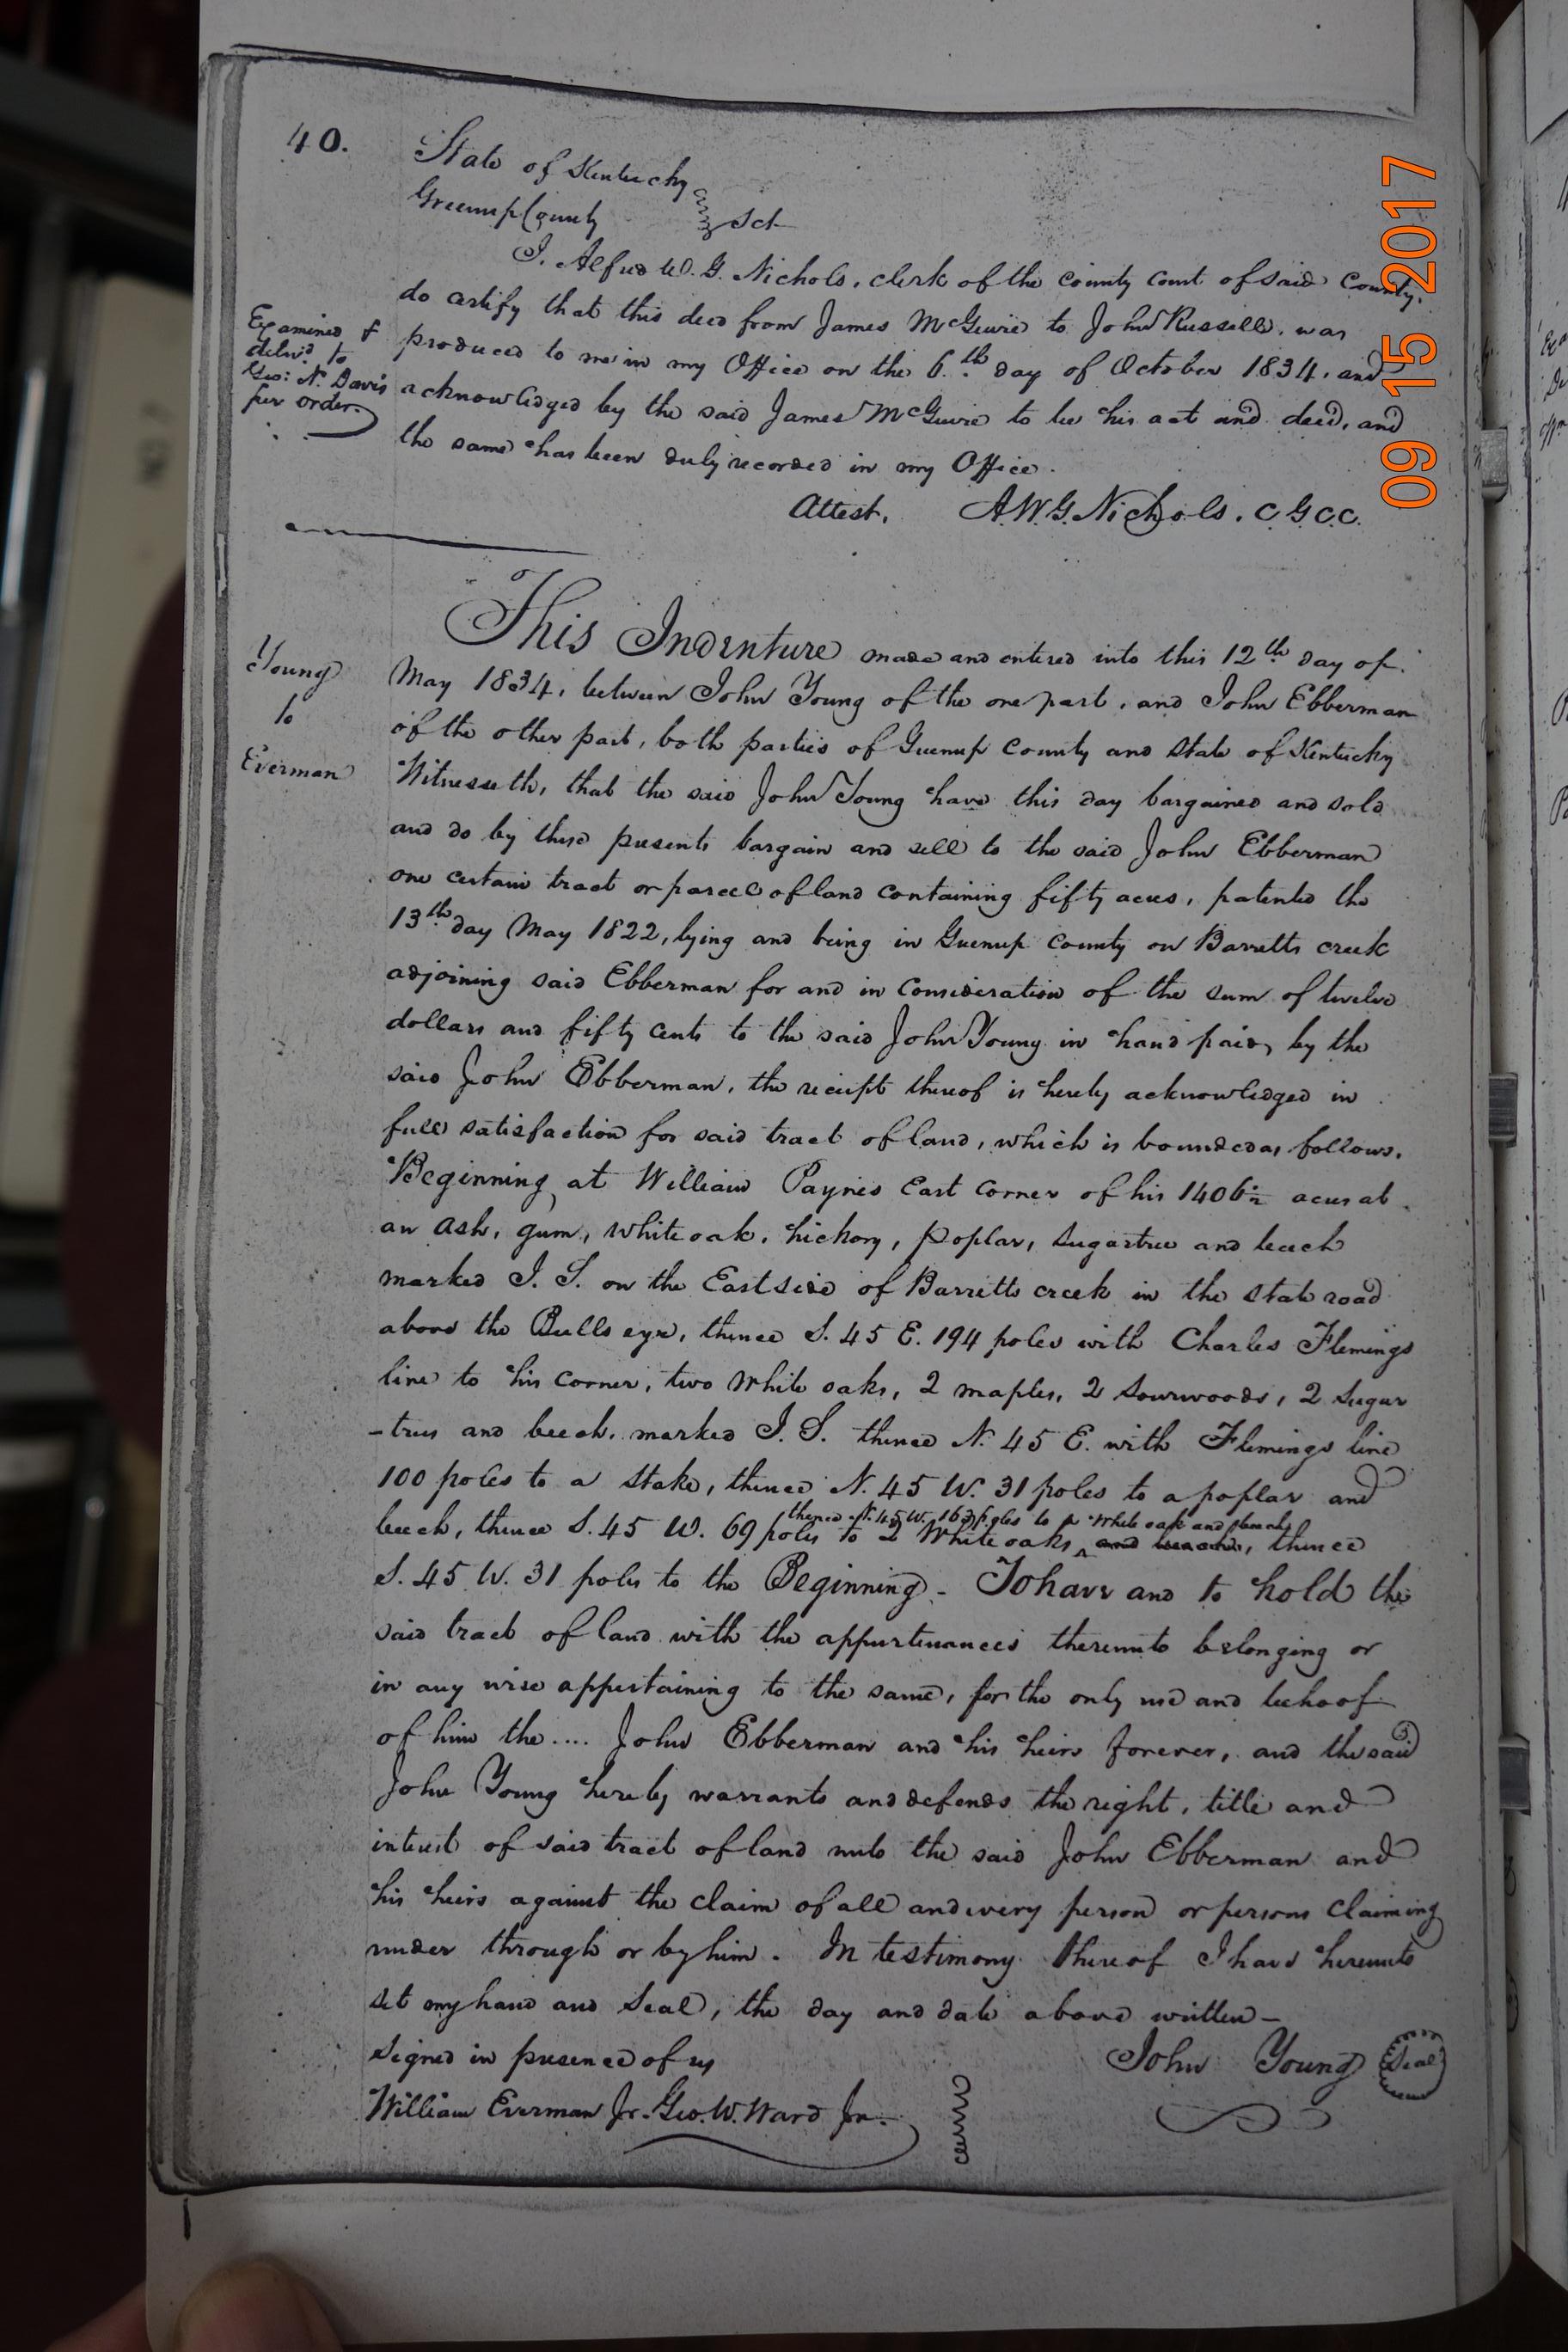 40.
State of Kentucky
Greenup County Sct
I. Alfred W. G. Nichols, clerk of the county court of said County,
do certify that this deed from James McGuire to John Russell, was
produced to me in my Office on the 6.th day of October 1834, and
acknowledged by the said James McGuire to be his act and deed, and
the same has been duly recorded in my Office.
Attest. A.W.G. Nichols. C G C C.
Examined &
delivd to
Geo: N. Davis
per order.
Young
to
Everman
This Indenture made and entered into this 12th day of
May 1834, between John Young of the one part, and John Ebberman
of the other part, both parties of Greenup County and State of Kentucky
Witnesseth, that the said John Young have this day bargained and sold
and do by these presents bargain and sell to the said John Ebberman
one certain tract or parcel of land containing fifty acres, patented the
13th day May 1822, lying and being in Greenup County on Barretts creek
adjoining said Ebberman for and in consideration of the sum of twelve
dollars and fifty cents to the said John Young in hand paid, by the
said John Ebberman, the receipt thereof is hereby acknowledged in
full satisfaction for said tract of land, which is bounded as follows.
Beginning at William Paynes East Corner of his 1406½ acres at
an ash, gum, white oak, hickory, poplar, sugartree and beech
marked I. S. on the East side of Barretts creek in the State road
above the Bulls eye, thence S. 45 E. 194 poles with Charles Flemings
line to his corner, two white oaks, 2 maples, 2 Sourwoods, 2 Sugar
-trees and beech, marked I. S. thence N. 45 E. with Flemings line
100 poles to a stake, thence N. 45 W. 31 poles to a poplar and
thence N. 45 W. 163 poles to a White oak and beech
beech, thence S. 45 W. 69 poles to 2 White oaks, and beech, thence
S. 45 W. 31 poles to the Beginning. To have and to hold the
said tract of land with the appurtenances thereunto belonging or
in any wise appertaining to the same, for the only use and behoof
of him the .... John Ebberman and his heirs forever, and the said
John Young hereby warrants and defends the right, title and
interest of said tract of land unto the said John Ebberman and
his heirs against the claim of all and every person or persons claiming
under through or by him. In testimony thereof I have hereunto
set my hand and Seal, the day and date above written—
Signed in presence of us
John Young Seal
William Everman Jr. Geo. W. Ward Jr.
09 15 2017